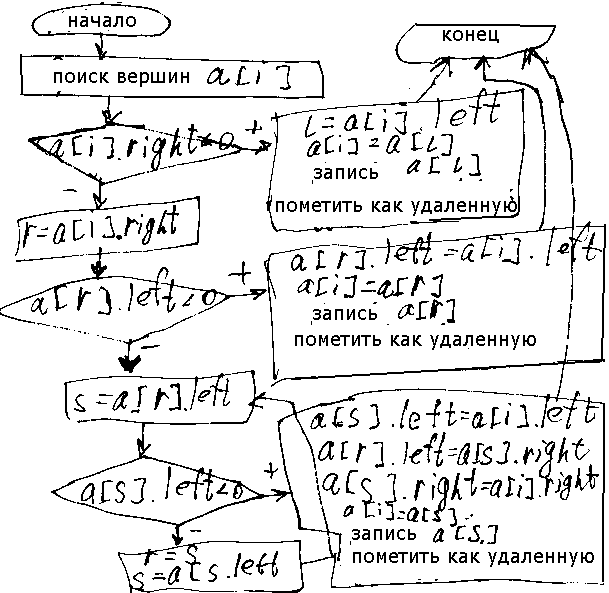 начало
конец
поиск вершин a[i]
a[i].right<0
+
L=a[i].left
a[i]=a[L]
запись a[L]
пометить как удаленную
-
r=a[i].right
a[r].left<0
+
a[r].left=a[i].left
a[i]=a[r]
запись a[r]
пометить как удаленную
-
s=a[r].left
a[s].left<0
+
a[s].left=a[i].left
a[r].left=a[s].right
a[s].right=a[i].right
a[i]=a[s]
запись a[s]
пометить как удаленную
-
r=s
s=a[s.left